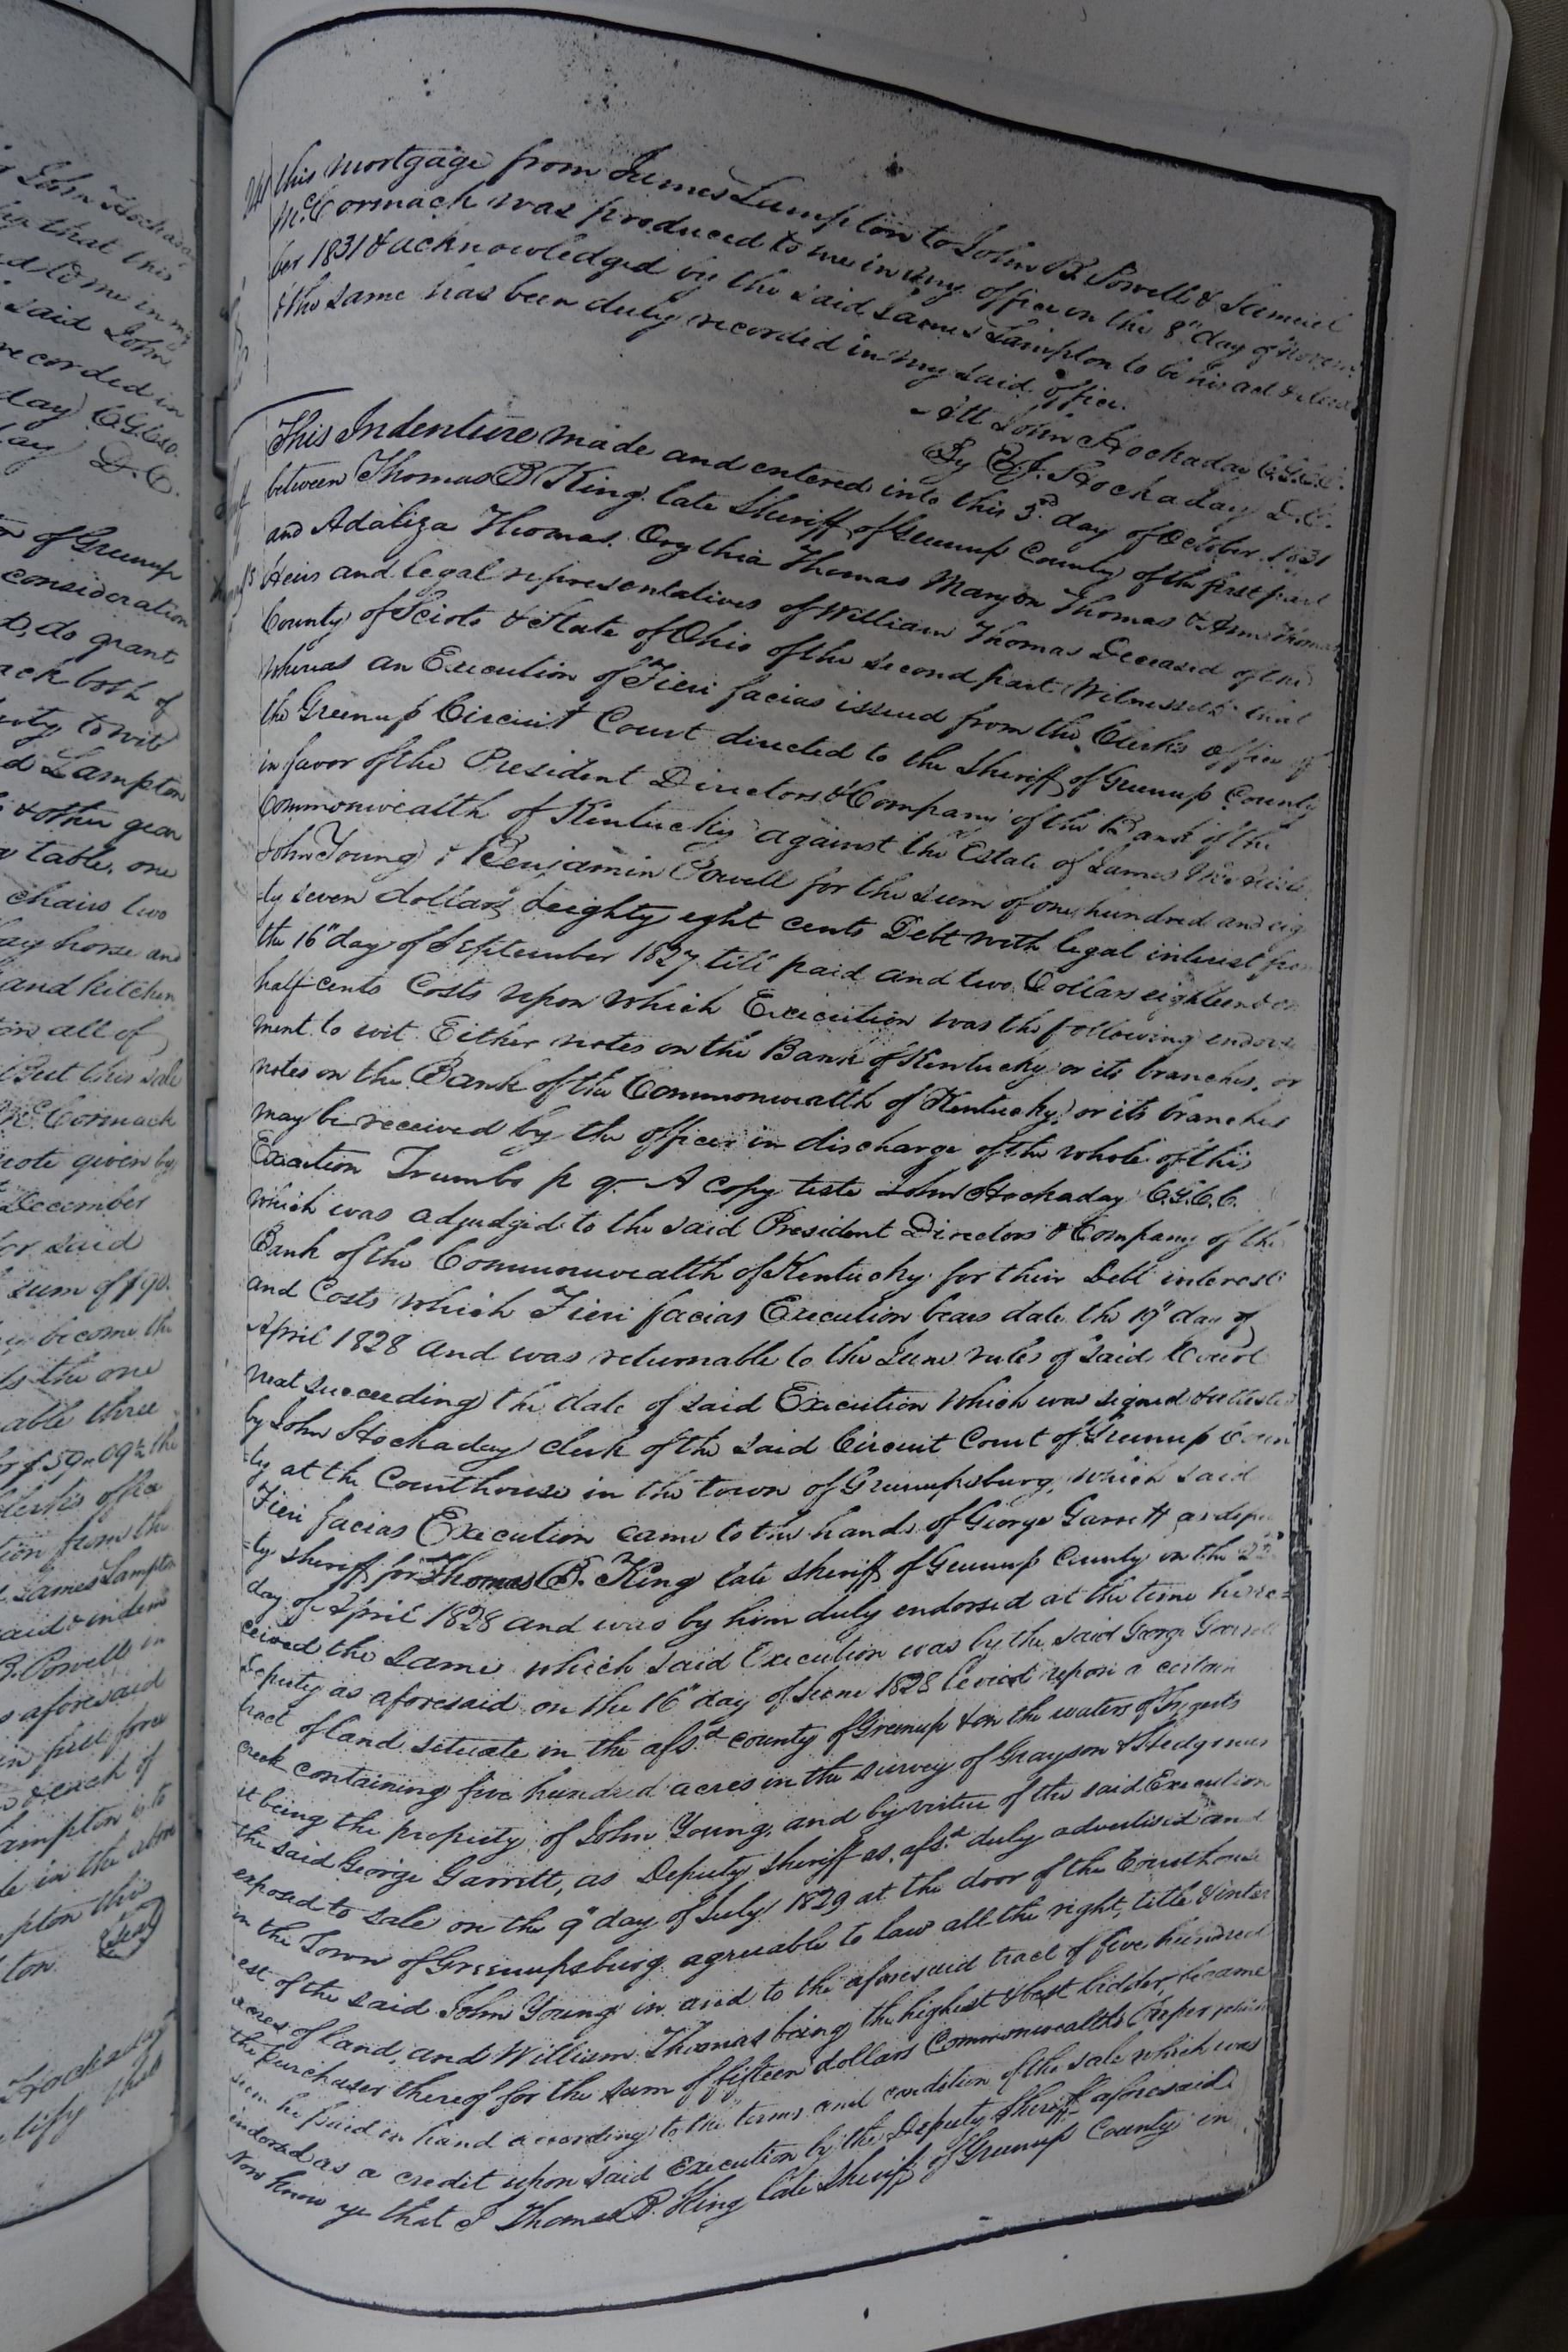 g John Hochada
fy that this
ed to me in my
said John
recorded in
day C.G.C.C.
ay D.C.
of Greenup
consideration
D, do grant
ack both of
to wit
d Lampton
& other gear
table, one
chairs two
bay horse and
and kitchen
on all of
But this sale
McCormack
note given by
December
for said
sum of $90.
become the
the one
able three
the
Clerks office
tion from the
James Lampton
said & indem
B. Powell in
s aforesaid
in full force
& each of
Lampton
in the above
pton this
ton. Seal
Hochaday
tify that
this mortgage from James Lampton to John B. Powell & Samuel
McCormack was produced to me in my office on the 8" day of Novem
ber 1831 & acknowledged by the said James Lampton to be his act & deed
& the same has been duly recorded in my said office.
Att John Hochaday C.G.C.C.
By E.J. Hochaday D.C.
This Indenture made and entered into this 3rd day of October 1831
between Thomas B King late Sheriff of Greenup County of the first part
and Adaliza Thomas Orythia Thomas Maryon Thomas & Ann Thomas
Heirs and legal representatives of William Thomas Deceased of the
County of Scioto & State of Ohio of the second part Witnesseth that
whereas an Execution of Fieri facias issued from the Clerks office of
the Greenup Circuit Court directed to the Sheriff of Greenup County
in favor of the President Directors & Company of the Bank of the
Commonwealth of Kentucky against the Estate of James
John Young & Benjamin Powell for the sum of one hundred and eig
-ty seven dollars & eighty eght cents Debt with legal interest from
the 16" day of September 1827 till paid and two Dollars eighteen & on
half cents Costs upon which Execution was the following endorse
ment to wit Either notes on the Bank of Kentucky or its branches, or
notes on the Bank of the Commonwealth of Kentucky or its branches
may be received by the officer in discharge of the whole of this
Execution Trumbo p q - A copy teste John Hochaday C.G.C.C.
which was adjudged to the said President Directors & Company of the
Bank of the Commonwealth of Kentucky for their Debt interest
and Costs which Fieri facias Execution bears date the 19" day of
April 1828 and was returnable to the June rules of said Court
next succeeding the date of said Execution which was signed & atteste
by John Hochaday clerk of the said Circuit Court of Greenup Coun
-ty at the Courthouse in the town of Greenupsburg, which said
Fieri facias Execution came to the hands of George Garrett as depu
-ty sheriff for Thomas B. King late sheriff of Greenup County on the 22
day of April 1828 and was by him duly endorsed at the time he re-
ceived the same which said Execution was by the said George Garrett
Deputy as aforesaid on the 16" day of June 1828 levied upon a certain
tract of land situate in the afsd county of Greenup & on the waters of Tygerts
creek containing five hundred acres in the survey of Grayson & Stedgman
it being the property of John Young, and by virtue of the said Execution
the said George Garrett, as Deputy sheriff as afsd duly advertised and
exposed to sale on the 9" day of July 1829 at the door of the Courthouse
in the Town of Greenupsburg agreeable to law all the right, title & inter
est of the said John Young in and to the aforesaid tract of five hundred
acres of land, and William Thomas being the highest & best bidder, became
the Purchaser thereof for the sum of fifteen dollars Commonwealths Paper which
sum he paid in hand according to the terms and condition of the sale which was
endorsed as a credit upon said Execution by the Deputy Sheriff aforesaid
Now know ye that I Thomas B. King late sheriff of Greenup County in